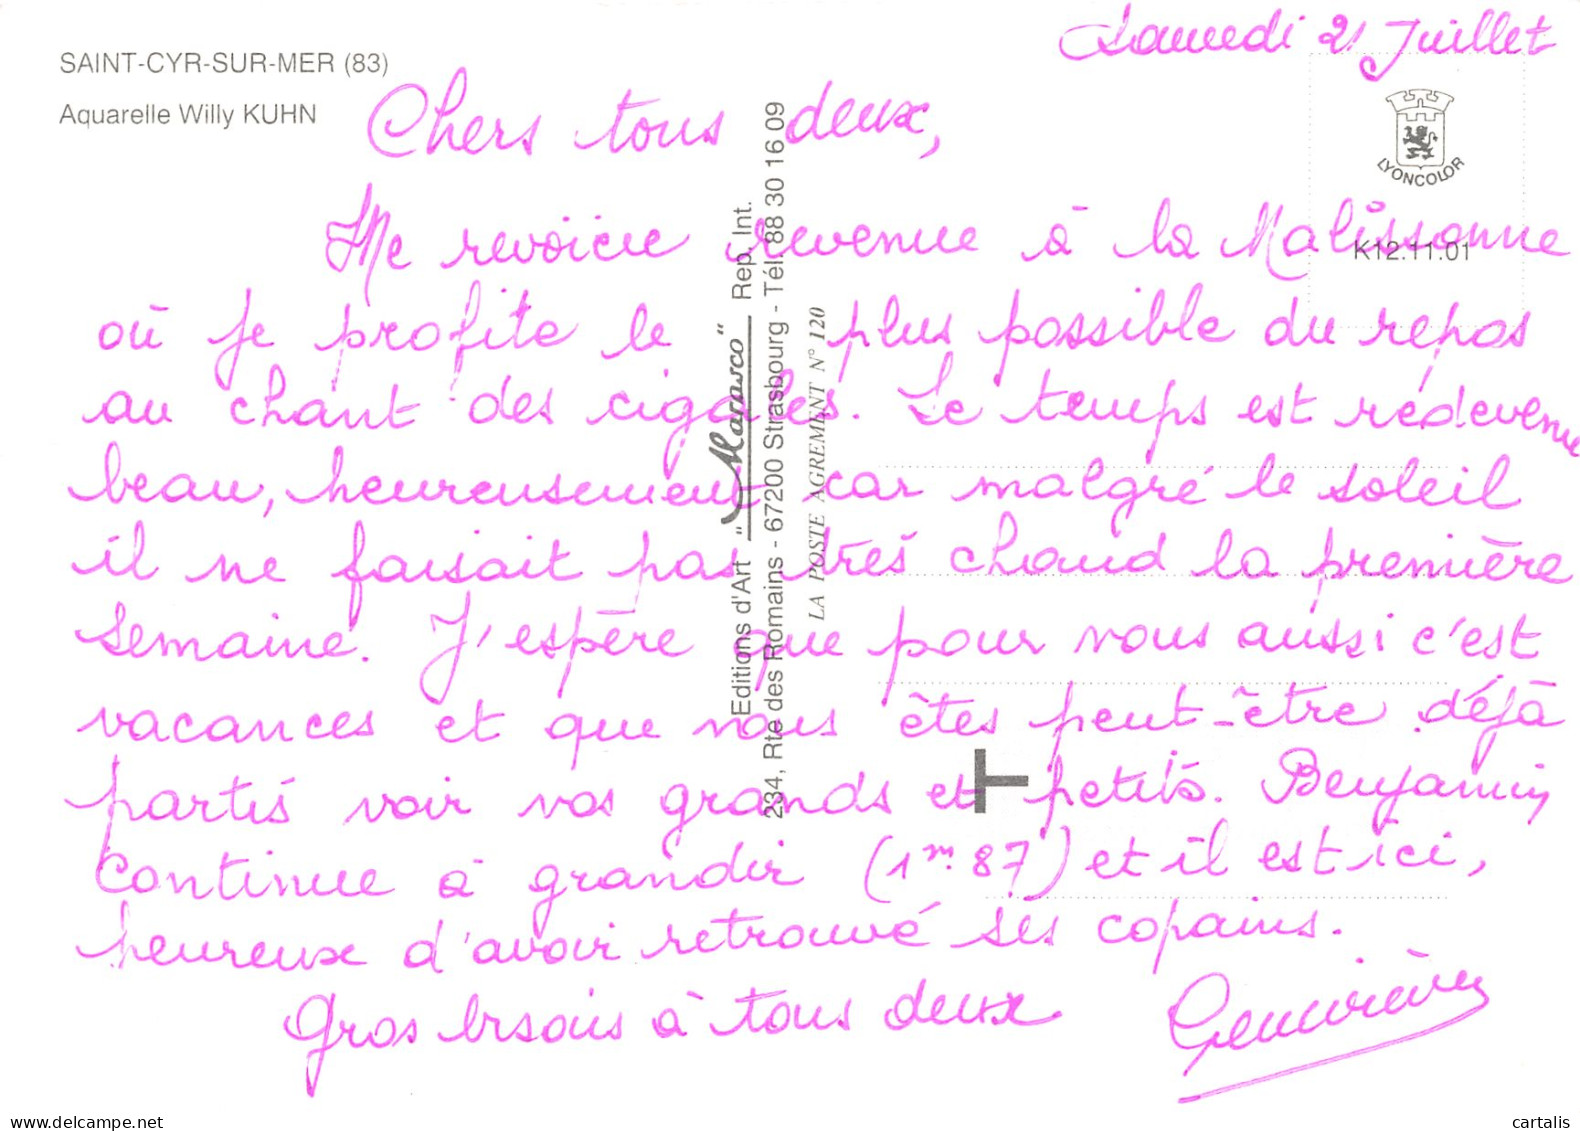 Samedi 21 Juillet
SAINT-CYR-SUR-MER (83)
Aquarelle Willy KUHN
LYONCOLOR
K12.11.01
Chers tous deux,
Me revoici revenue à la Malissonne
où je profite le plus possible du repos
au chant des cigales. Le temps est redevenu
beau, heureusement car malgré le soleil
il ne faisait pas très chaud la première
semaine. J'espère que pour vous aussi c'est
vacances et que vous êtes peut-être déjà
partis voir vos grands et petits. Benjamin
continue à grandir (1m.87) et il est ici,
heureux d'avoir retrouvé ses copains.
Gros bisous à tous deux
Geneviève
Editions d'Art "Marasco" Rep. Int.
234, Rte des Romains - 67200 Strasbourg - Tél. 88 30 16 09
LA POSTE AGREMENT N° 120
delcampe.net
cartalis